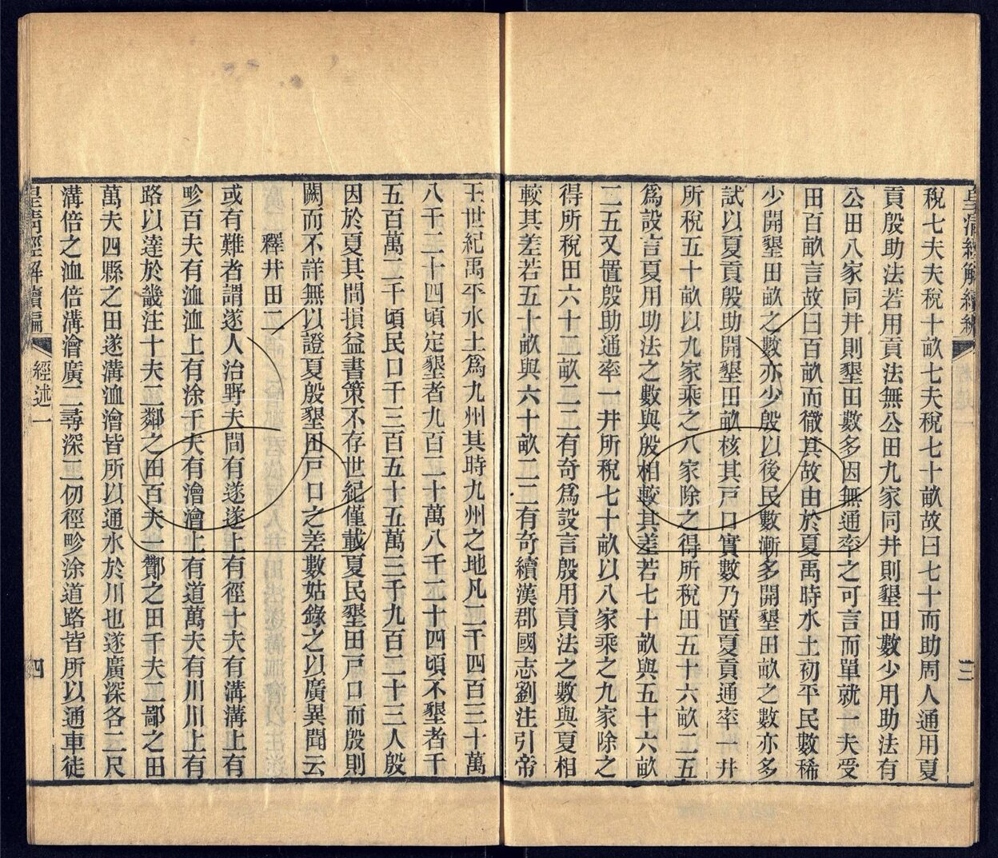 皇清經解續編
三
稅七夫夫稅十畝七夫稅七十畝故曰七十而助周人通用夏
貢殷助法若用貢法無公田九家同井則墾田數少用助法有
公田八家同井則墾田數多因無通率之可言而單就一夫受
田百畝言故曰百畝而徹其故由於夏禹時水土初平民數稀
少開墾田畝之數亦少殷以後民數漸多開墾田畝之數亦多
試以夏貢殷助開墾田畝核其戸口實數乃置夏貢通率一井
所稅五十畝以九家乘之八家除之得所稅田五十六畝二五
爲設言夏用助法之數與殷相較其差若七十畝與五十六畝
二五又置殷助通率一井所稅七十畝以八家乘之九家除之
得所稅田六十二畝二二有奇爲設言殷用貢法之數與夏相
較其差若五十畝與六十畝二二有奇續漢郡國志劉注引帝
王世紀禹平水土爲九州其時九州之地凡二千四百三十萬
八千二十四頃定墾者九百二十萬八千二十四頃不墾者千
五百萬二千頃民口千三百五十五萬三千九百二十三人殷
因於夏其間損益書策不存世紀僅載夏民墾田戸口而殷則
闕而不詳無以證夏殷墾田戸口之差數姑錄之以廣異聞云
釋井田二
或有難者謂遂人治野夫間有遂遂上有徑十夫有溝溝上有
畛百夫有洫洫上有涂千夫有澮澮上有道萬夫有川川上有
路以達於畿注十夫二鄰之田百夫一酇之田千夫二鄙之田
萬夫四縣之田遂溝洫澮皆所以通水於川也遂廣深各二尺
溝倍之洫倍溝澮廣二尋深二仞徑畛涂道路皆所以通車徒
皇清經解續編
經述一
四